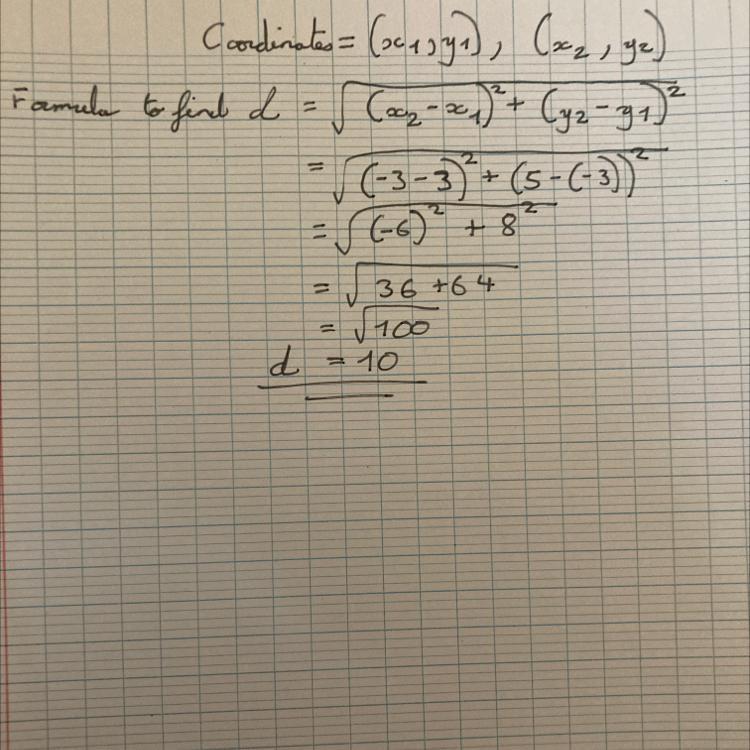 Coordinates = (x₁, y₁), (x₂, y₂)
Formula to find d = √((x₂ - x₁)² + (y₂ - y₁)²)
= √((-3 - 3)² + (5 - (-3))²)
= √((-6)² + 8²)
= √(36 + 64)
= √100
d = 10